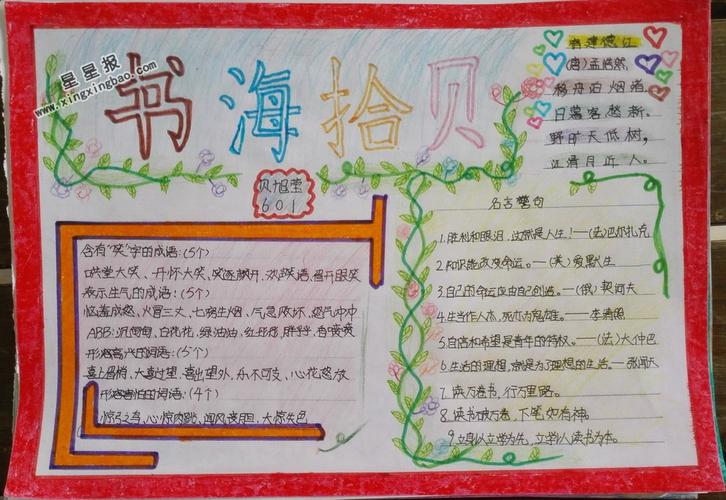 星星报
www.xingxingbao.com
书海拾贝
601
宿建德江
(唐)孟浩然
移舟泊烟渚,
日暮客愁新。
野旷天低树,
江清月近人。
含有“笑”字的成语:(5个)
哄堂大笑、开怀大笑、笑逐颜开、欢声笑语、眉开眼笑
表示生气的成语:(5个)
恼羞成怒、火冒三丈、七窍生烟、气急败坏、怒气冲冲
ABB:沉甸甸、白花花、绿油油、红彤彤、胖乎乎、香喷喷
形容高兴的词语:(5个)
喜上眉梢、大喜过望、喜出望外、乐不可支、心花怒放
形容害怕的词语:(4个)
惊弓之鸟、心惊肉跳、闻风丧胆、大惊失色
名言警句
1.胜利和眼泪,这就是人生!——(法)巴尔扎克
2.知识能改变命运。——(美)爱默人
3.自己的命运应由自己创造。——(俄)契诃夫
4.生当作人杰,死亦为鬼雄。——李清照
5.自信和希望是青年的特权。——(法)大仲马
6.生活的理想,就是为了理想的生活。——张闻天
7.读万卷书,行万里路。
8.读书破万卷,下笔如有神。
9.立身以立学为先,立学以读书为本。